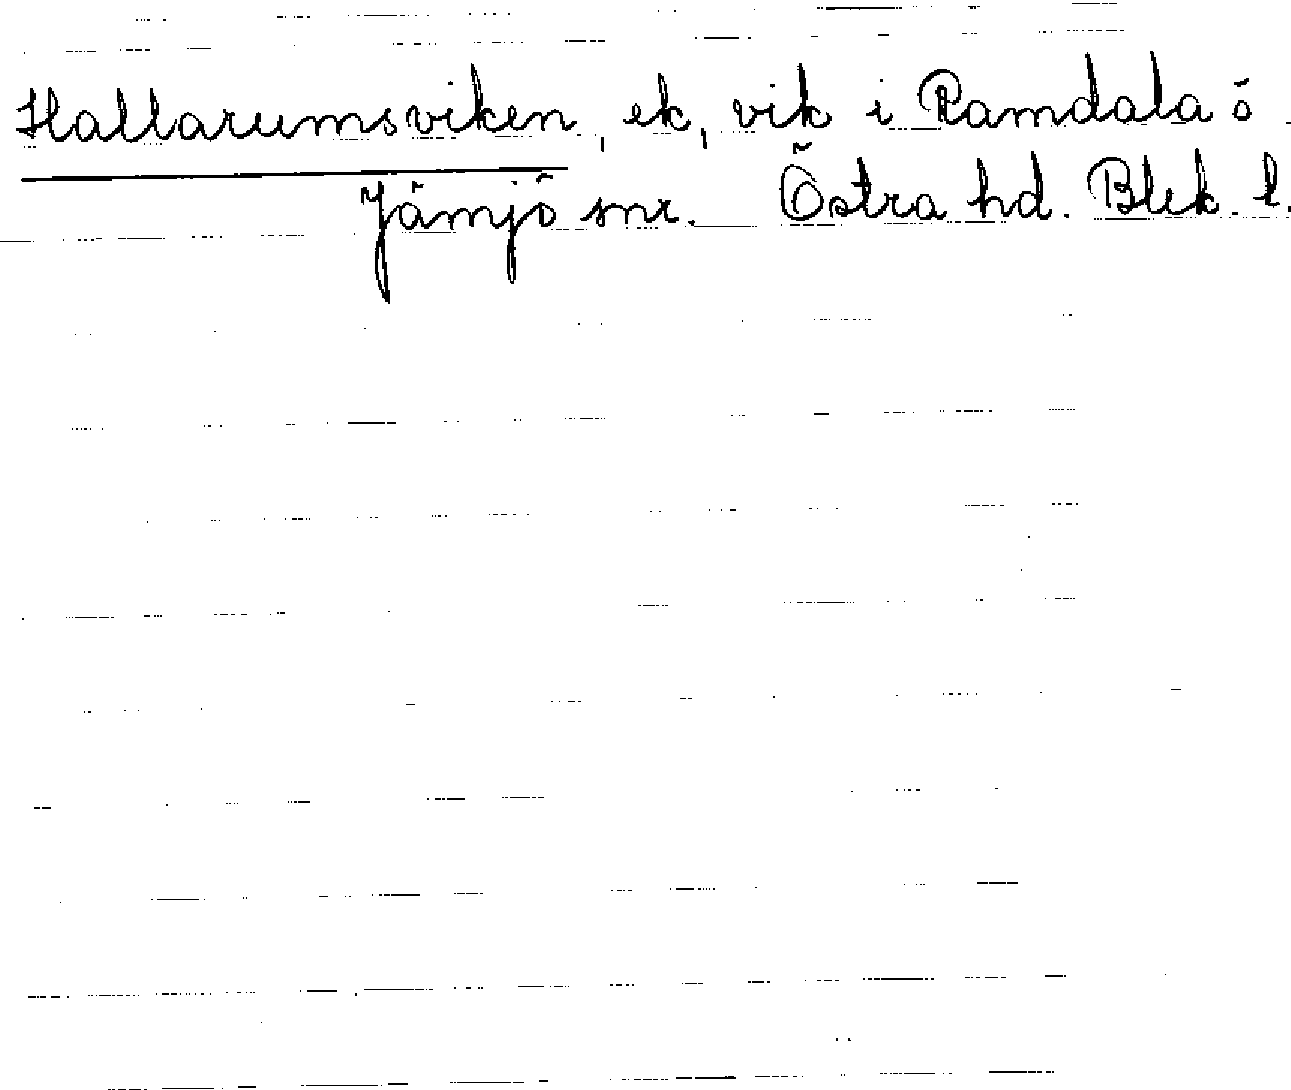 Hallarumsviken, ek, vik i Ramdala o
Jämjö snr. Östra hd. Blek. l.